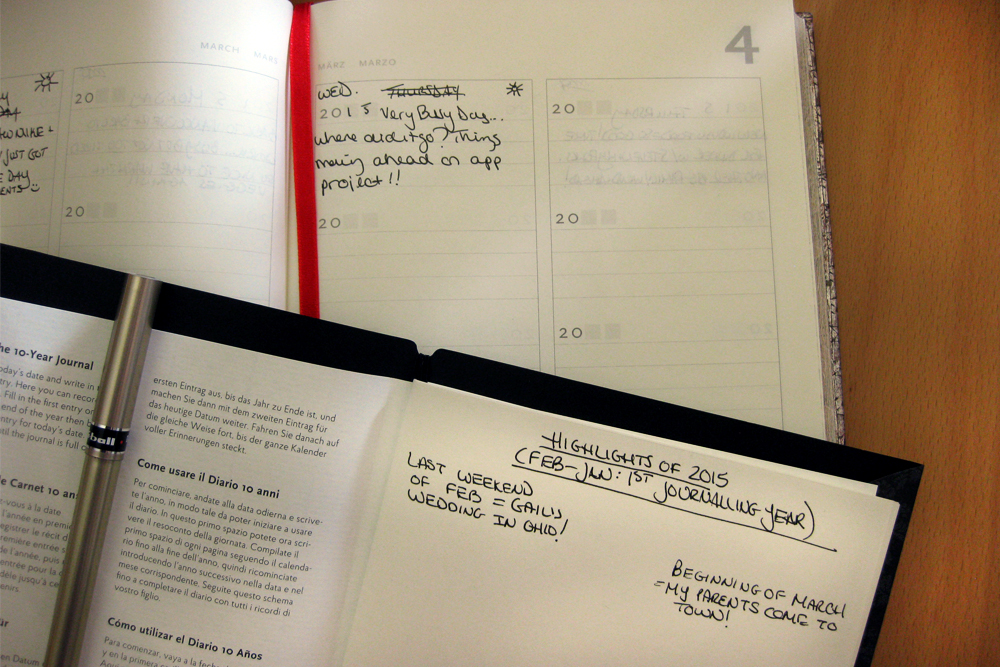 MARCH MARS
20
HOWIKE +
JUST GOT
DAY
20
MÄRZ MARZO
4
WED. THURSDAY
2015 Very Busy Day...
where did it go? Things
moving ahead on app
project!!
20
20
20
20
he 10-Year Journal
oday's date and write in
try. Here you can recor
Fill in the first entry o
end of the year then b
entry for today's date.
til the journal is full o
ball
le Carnet 10 an
e-vous à la date
l'année en premie
egistrer le récit d
remière entrée s
de l'année, puis
entrée pour la d
dèle jusqu'à ce
enirs.
ür
en Datum
ersten Eintrag aus, bis das Jahr zu Ende ist, und
machen Sie dann mit dem zweiten Eintrag für
das heutige Datum weiter. Fahren Sie danach auf
die gleiche Weise fort, bis der ganze Kalender
voller Erinnerungen steckt.
Come usare il Diario 10 anni
Per cominciare, andate alla data odierna e scrive-
te l'anno, in modo tale da poter iniziare a usare
il diario. In questo primo spazio potete ora scri-
vere il resoconto della giornata. Compilate il
primo spazio di ogni pagina seguendo il calenda-
rio fino alla fine dell'anno, quindi ricominciate
introducendo l'anno successivo nella data e nel
mese corrispondente. Seguite questo schema
fino a completare il diario con tutti i ricordi di
vostro figlio.
Cómo utilizar el Diario 10 Años
Para comenzar, vaya a la fecha
y en la primera
HIGHLIGHTS OF 2015
(FEB-JAN: 1ST JOURNALLING YEAR)
LAST WEEKEND
OF FEB = GAIL'S
WEDDING IN OHIO!
BEGINNING OF MARCH
= MY PARENTS COME TO
TOWN!